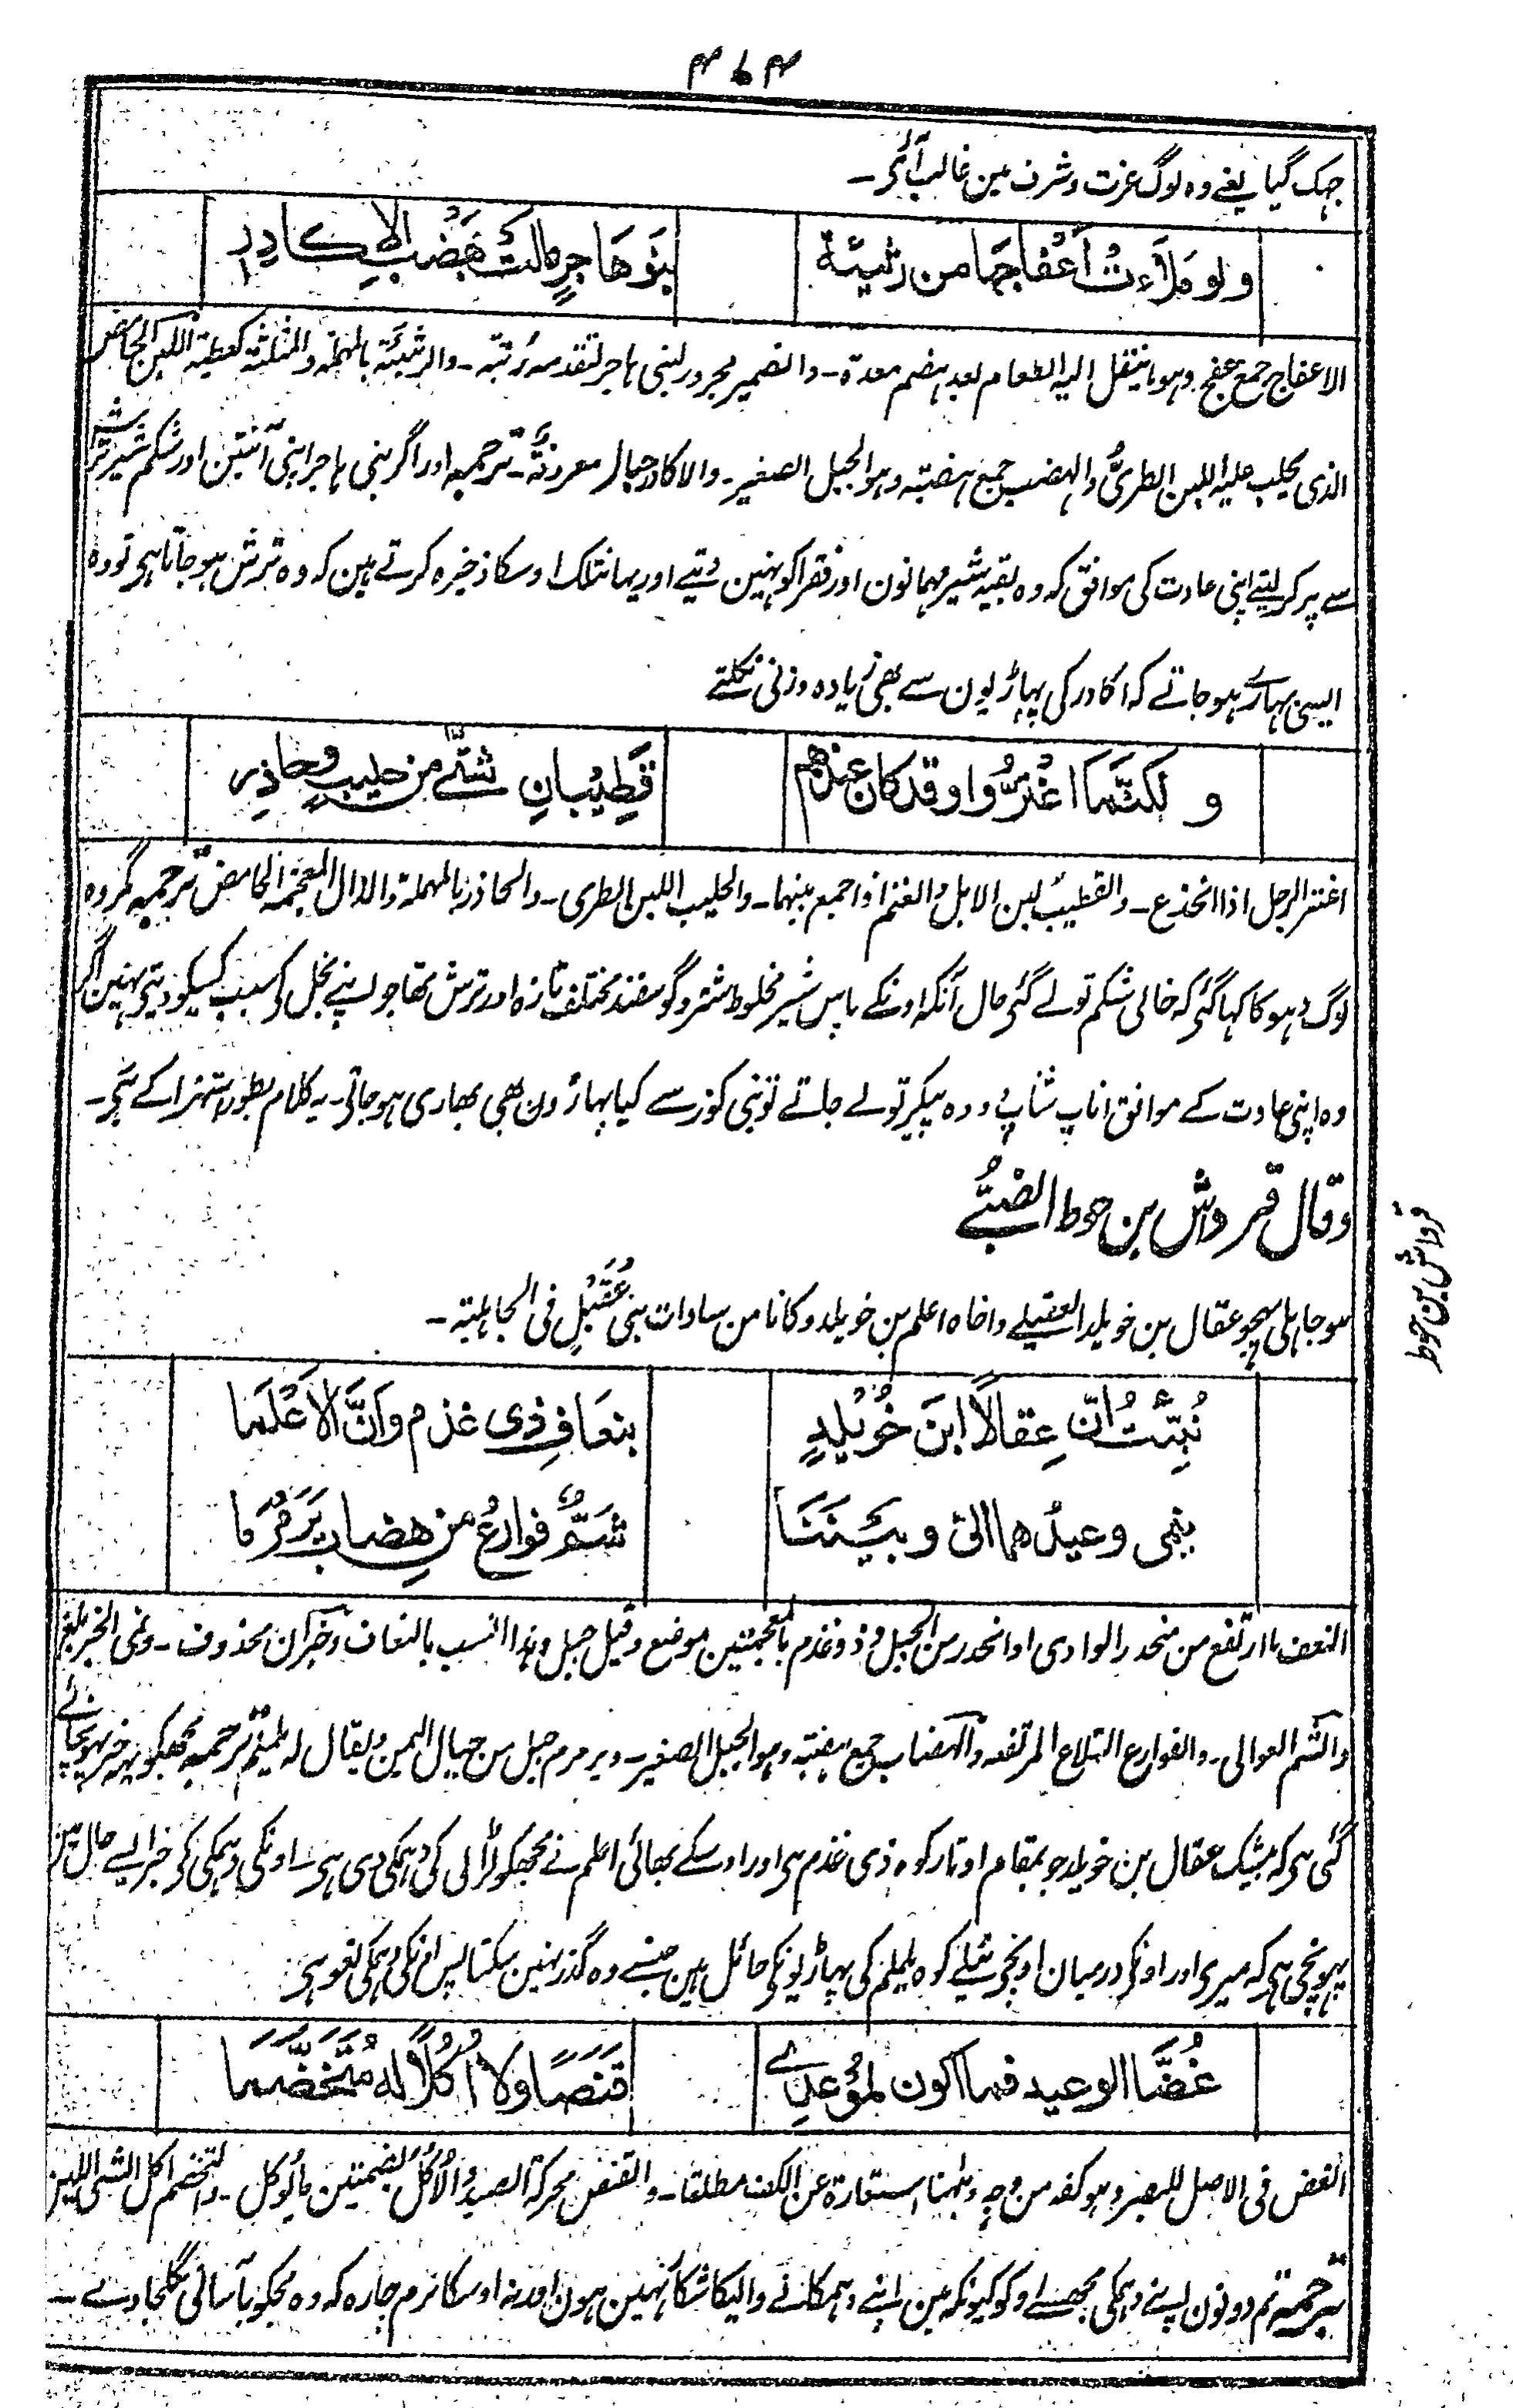 ۴۷۴
جہک گیا یعنے وہ لوگ عزت و شرف مین غالب آئی۔
ولو مَلَأَتْ أَعْفَاجَهَا من رَثِيئَةٍ بَنُو هَاجِرٍ مالت بِهَضْبِ الأَكادِرِ
الاعفاج جمع عفج وہو ما ینتقل الیہ الطعام بعد ہضم معدۃ۔ والضمیر مجرور لبنی ہاجر لتقدمہ رتبۃ۔ والرثیئۃ بالمہملۃ والمثلثۃ کعطیۃ اللبن الحامض
الذی یحلب علیہ اللبن الطریّ والہضب جمع ہضبۃ وہو الجبل الصغیر۔ والاکادر جبال معروفۃ۔ ترجمہ اور اگر بنی ہاجر اپنی آنتین اور شکم شیر ترش
سے پر کرلیتے اپنی عادت کی موافق کہ وہ بقیہ شیر مہمانون اور فقرا کو نہین دیتے اور یہانتلک اوسکا ذخیرہ کرتے ہین کہ وہ ترش ہوجاتا ہی تو وہ
ایسی بہارے ہوجاتے کہ اکادر کی پہاڑیون سے بھی زیادہ وزنی نکلتے
و لكنَّما اغْتَرُّوا وقد كان عندهم قَطِيْبانِ شتّٰى من حليبٍ وحاذِرِ
اغتر الرجل اذا انخدع۔ والقطیب لبن الابل والغنم اذا جمع بینہما۔ والحلیب اللبن الطری۔ والحاذر بالمہملۃ والذال المعجمۃ الحامض ترجمہ مگر وہ
لوگ دہوکا کہا گئی کہ خالی شکم تولے گئی حال آنکہ اونکے پاس شیر مخلوط شتر و گوسفند مختلف تازہ اور ترش تھا جو اپنے بخل کی سبب کسیکو دیتی نہین اگر
وہ اپنی عادت کے موافق اناپ شناپ دودہ پیکر تولے جاتے تو بنی کوز سے کیا پہاڑون بھی بھاری ہوجاتی۔ یہ کلام بطور استہزا کے ہی۔
وقال قرواش بن حوط الضبّے
ہو جاہلی یہجو عقال بن خویلد العقیلے واخاہ اعلم بن خویلد وکانا من سادات بنی عُقَیْلٍ فی الجاہلیۃ۔
نُبِّئْتُ انّ عِقالًا ابنَ خُوَيْلِدٍ بنعَافِ ذى غذم وَانَّ الأَعْلَما
ينمى وعيدُهما الىَّ وبيننَا شَمٌّ فوارعُ من هضاب يَرَمْرَما
النعف ما ارتفع من منحدر الوادی او انحدر من الجبل وذو غذم بالمعجمتین موضع وقیل جبل وہذا انسب بالنعاف وخبر ان محذوف۔ ونمی الخبر بلغ
والشم العوالی۔ والفوارع التلاع المرتفعۃ والہضاب جمع ہضبۃ وہو الجبل الصغیر۔ ویرمرم جبل من جبال الیمن ویقال لہ یلملم ترجمہ مجھکو یہ خبر پہونچائے
گئی ہی کہ بیشک عقال بن خویلد جو بمقام اوتار کوہ ذی غذم ہی اور اوسکے بھائی اعلم نے مجھکو لڑائی کی دہمکی دی ہی۔ اونکی دہمکی کی خبر ایسے حال مین
پہونچی ہی کہ میری اور اونکی درمیان اونچی ٹیلے کوہ یلملم کی پہاڑیونکی حائل ہین جنسے وہ گذر نہین سکتا پس اونکی دہمکی لغو ہی
غُضَّا الوعيد فما اكون لموعدِىْ قَنَصًا ولا أُكُلًا له مُتَخَضَّما
الغض فی الاصل للبصر وہو کفہ من وجہٍ وہہنا استعارۃ عن الکف مطلقا۔ والقنص محرکۃ الصید والاُکُل بضمتین ما یوکل۔ والتخضم اکل الشی اللین
ترجمہ تم دونون اپنے دہمکی مجھسے روکو کیونکہ مین اپنے دہمکانے والیکا شکار نہین ہون اور نہ اوسکا نرم چارہ کہ وہ مجکو بآسانی نگلجاوے۔
قرواش بن حوط